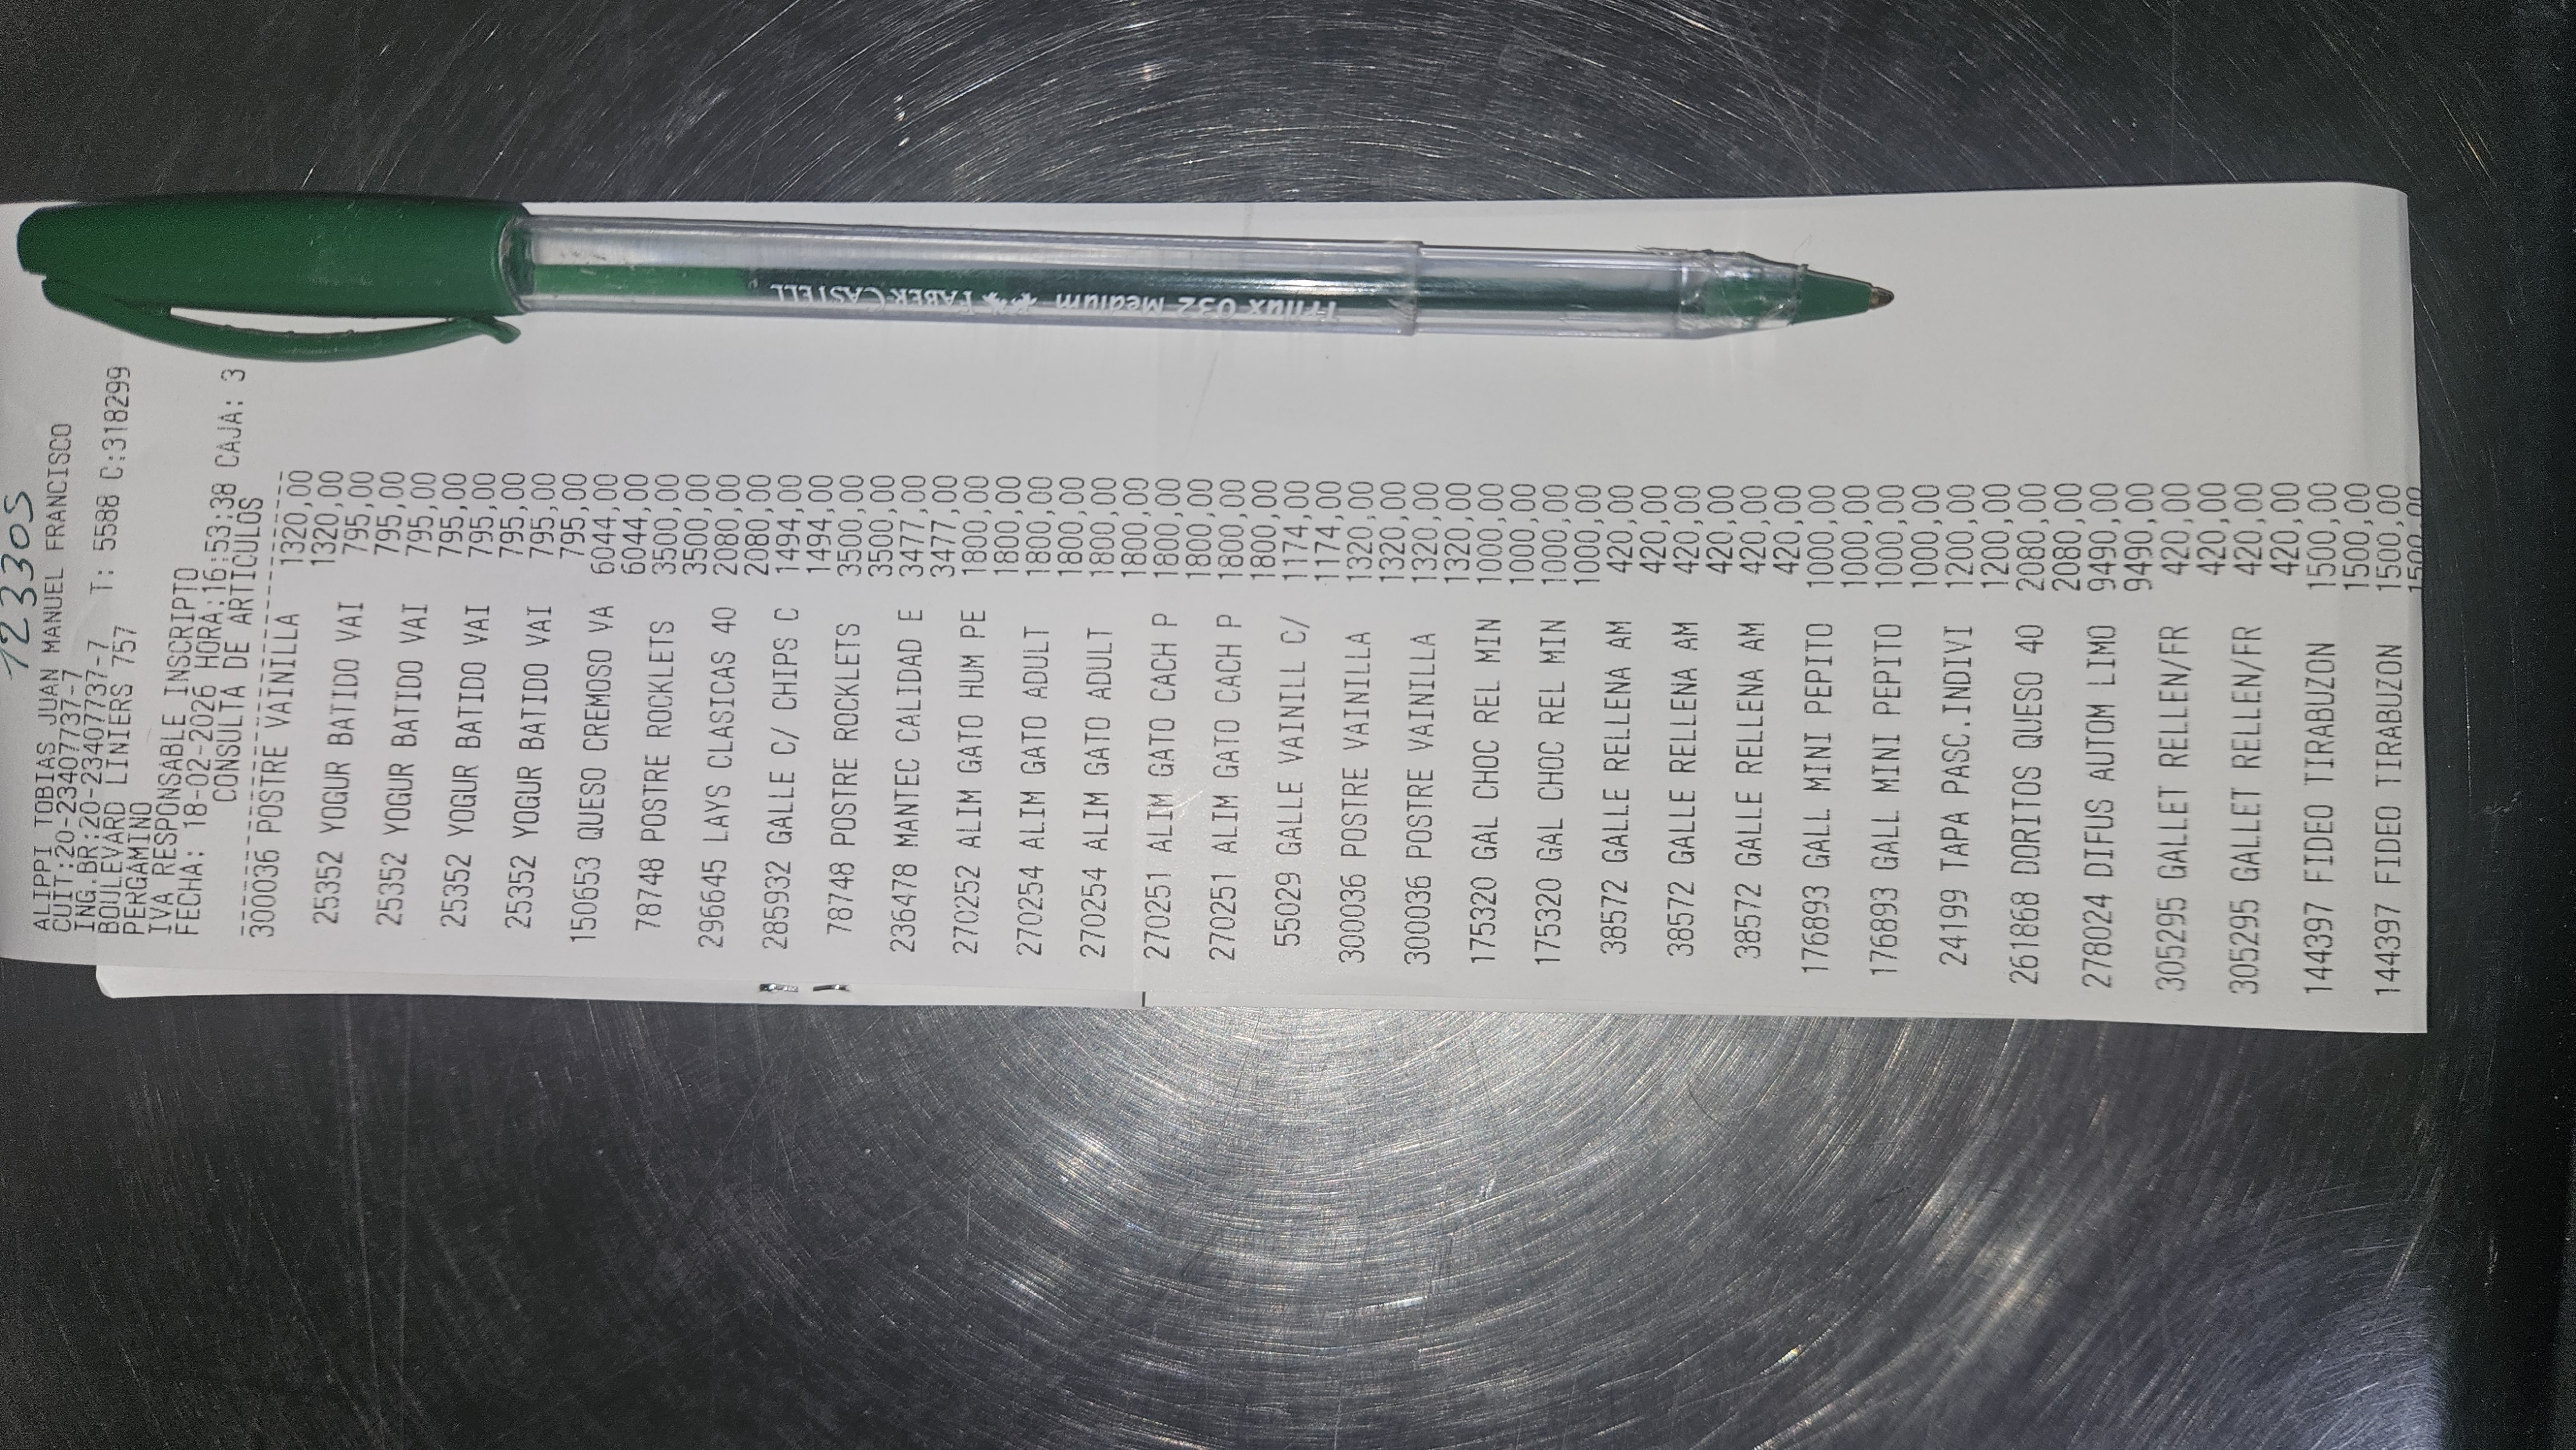 12330S
ALIPPI TOBIAS JUAN MANUEL FRANCISCO
CUIT:20-23407737-7
ING.BR:20-23407737-7
BOULEVARD LINIERS 757 T: 5588 C:318299
PERGAMINO
IVA RESPONSABLE INSCRIPTO
FECHA: 18-02-2026 HORA:16:53:38 CAJA: 3
CONSULTA DE ARTICULOS
300036 POSTRE VAINILLA 1320,00
1320,00
25352 YOGUR BATIDO VAI 795,00
795,00
25352 YOGUR BATIDO VAI 795,00
795,00
25352 YOGUR BATIDO VAI 795,00
795,00
25352 YOGUR BATIDO VAI 795,00
795,00
150653 QUESO CREMOSO VA 6044,00
6044,00
78748 POSTRE ROCKLETS 3500,00
3500,00
296645 LAYS CLASICAS 40 2080,00
2080,00
285932 GALLE C/ CHIPS C 1494,00
1494,00
78748 POSTRE ROCKLETS 3500,00
3500,00
236478 MANTEC CALIDAD E 3477,00
3477,00
270252 ALIM GATO HUM PE 1800,00
1800,00
270254 ALIM GATO ADULT 1800,00
1800,00
270254 ALIM GATO ADULT 1800,00
1800,00
270251 ALIM GATO CACH P 1800,00
1800,00
270251 ALIM GATO CACH P 1800,00
1800,00
55029 GALLE VAINILL C/ 1174,00
1174,00
300036 POSTRE VAINILLA 1320,00
1320,00
300036 POSTRE VAINILLA 1320,00
1320,00
175320 GAL CHOC REL MIN 1000,00
1000,00
175320 GAL CHOC REL MIN 1000,00
1000,00
38572 GALLE RELLENA AM 420,00
420,00
38572 GALLE RELLENA AM 420,00
420,00
38572 GALLE RELLENA AM 420,00
420,00
176893 GALL MINI PEPITO 1000,00
1000,00
176893 GALL MINI PEPITO 1000,00
1000,00
24199 TAPA PASC.INDIVI 1200,00
1200,00
261868 DORITOS QUESO 40 2080,00
2080,00
278024 DIFUS AUTOM LIMO 9490,00
9490,00
305295 GALLET RELLEN/FR 420,00
420,00
305295 GALLET RELLEN/FR 420,00
420,00
144397 FIDEO TIRABUZON 1500,00
1500,00
144397 FIDEO TIRABUZON 1500,00
1500,00
Trilux 032 Medium FABER CASTELL